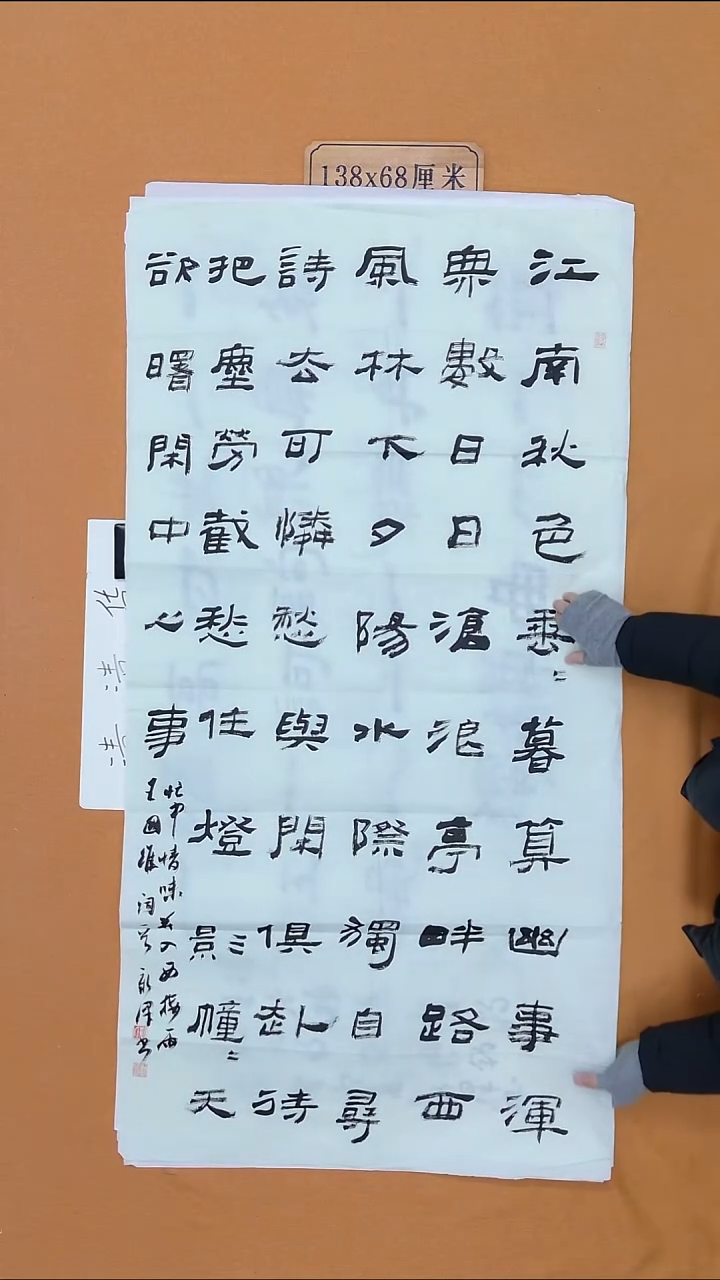 138x68厘米
江南秋色垂〻暮算幽事渾
無數日日滄浪亭畔路西
風林下夕陽水際獨自尋
詩去可憐愁與閑俱赴待
把塵勞截愁住燈影幢〻天
欲曙閑中心事
忙中情味并入西樓雨
王國維